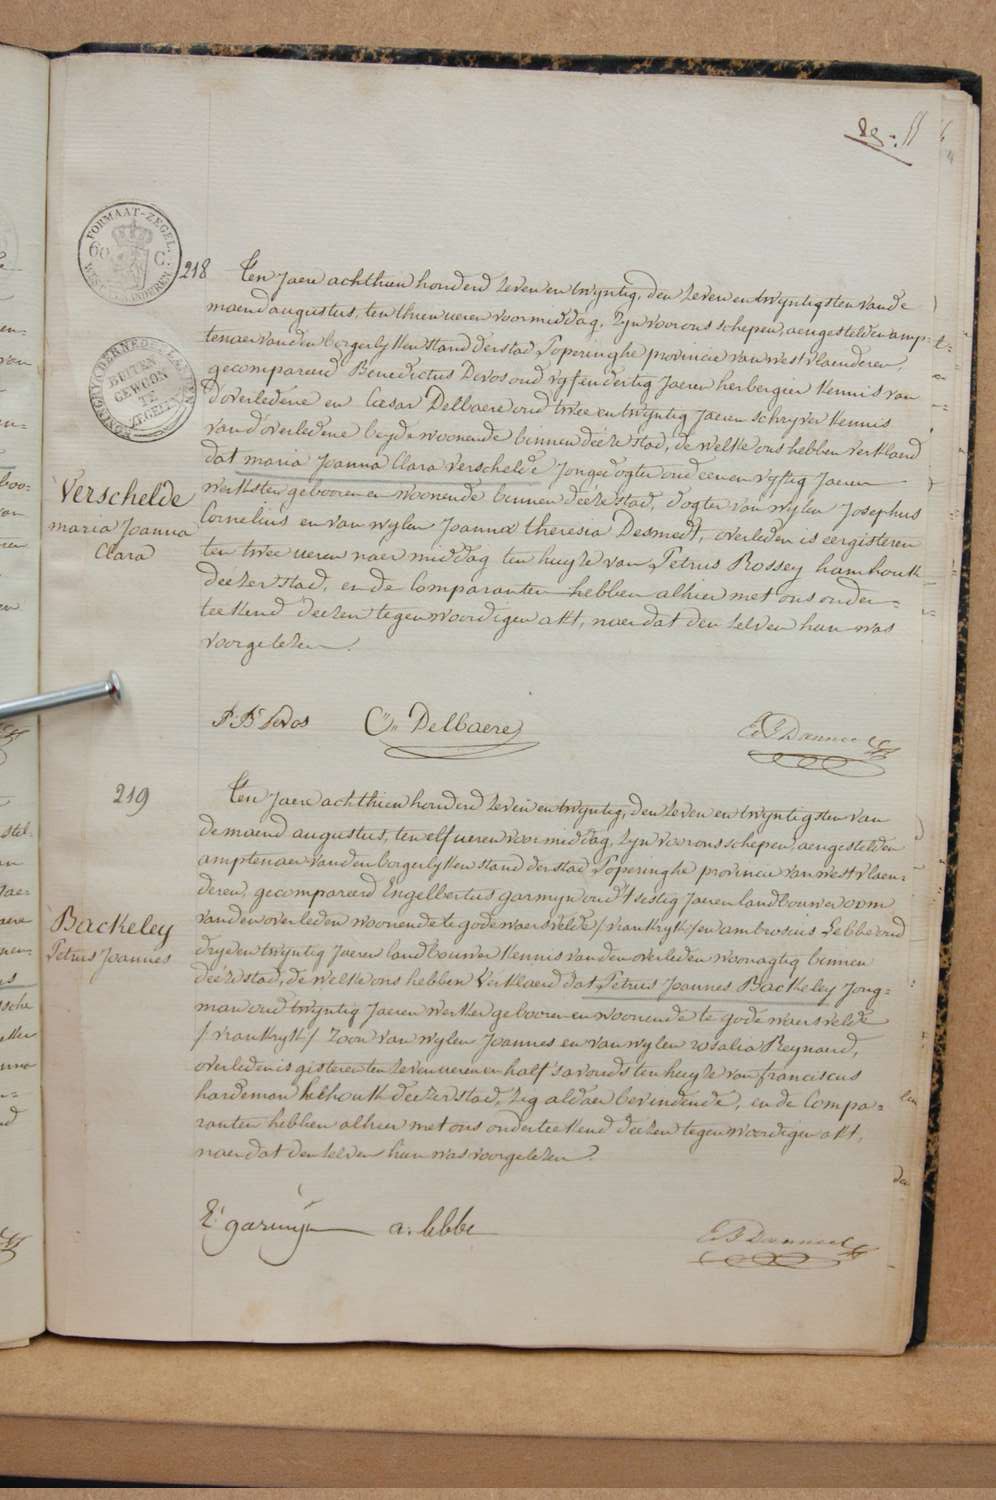 FORMAAT-ZEGEL.
60 C.
WEST-VLAANDEREN
KONINGRYK DER NEDERLANDEN
BUITEN
GEWOON
TE
ZEGELEN
218
Ten jaere achthien honderd zeven en twyntig, den zeven en twyntigsten van de
maend augustus, ten thien ueren voormiddag, zyn voor ons schepen, aengestelden amp=
tenaer van den borgerlyken stand der stad Poperinghe provincie van westvlaenderen,
gecompareerd Benedictus Devos oud vyf en dertig Jaeren herbergier kennis van
d'overledene en Cæsar Delbaere oud twee en twyntig Jaeren schryver kennis
van d'overledene beyde woonende binnen deeze stad, de welke ons hebben verklaerd
dat maria Joanna Clara Verschelde Jonge dogter oud een en vyftig Jaeren
werksten gebooren en woonende binnen deeze stad, dogter van wylen Josephus
Cornelius en van wylen Joanna theresia Desmedt, overleden is eergisteren
ten twee ueren naermiddag ten huyze van Petrus Rossey hamhouk
deezer stad, en de Comparanten hebben alhier met ons onder=
teekend deezen tegenwoordigen akt, naer dat den zelven hun was
voorgelezen.
Verschelde
maria Joanna
Clara
P. Bt Devos
C. Delbaere
219
Ten jaere achthien honderd zeven en twyntig, den zeven en twyntigsten van
de maend augustus, ten elf ueren voormiddag, zyn voor ons schepen, aengestelden
amptenaer van den borgerlyken stand der stad Poperinghe provincie van westvlaen=
deren, gecompareerd Engelbertus garmyn oud t'sestig Jaeren landbouwer oom
van den overleden woonende te godewaersvelde / vrankryk / en ambrosius Lebbe oud
dry en twyntig Jaeren landbouwer kennis van den overleden woonagtig binnen
deeze stad, de welke ons hebben verklaerd dat Petrus Joannes Backeley Jong=
man oud twyntig Jaeren werker gebooren en woonende te godewaersvelde
/ vrankryk / zoon van wylen Joannes en van wylen rosalia Reynaerd,
overleden is gisteren ten zeven ueren en half s'avonds ten huyze van franciscus
hardeman helhouk deezer stad, zig aldaer bevindende, en de Compa=
ranten hebben alhier met ons onderteekend deezen tegenwoordigen akt,
naer dat den zelven hun was voorgelezen.
Backeley
Petrus Joannes
E. garmyn
a. lebbe